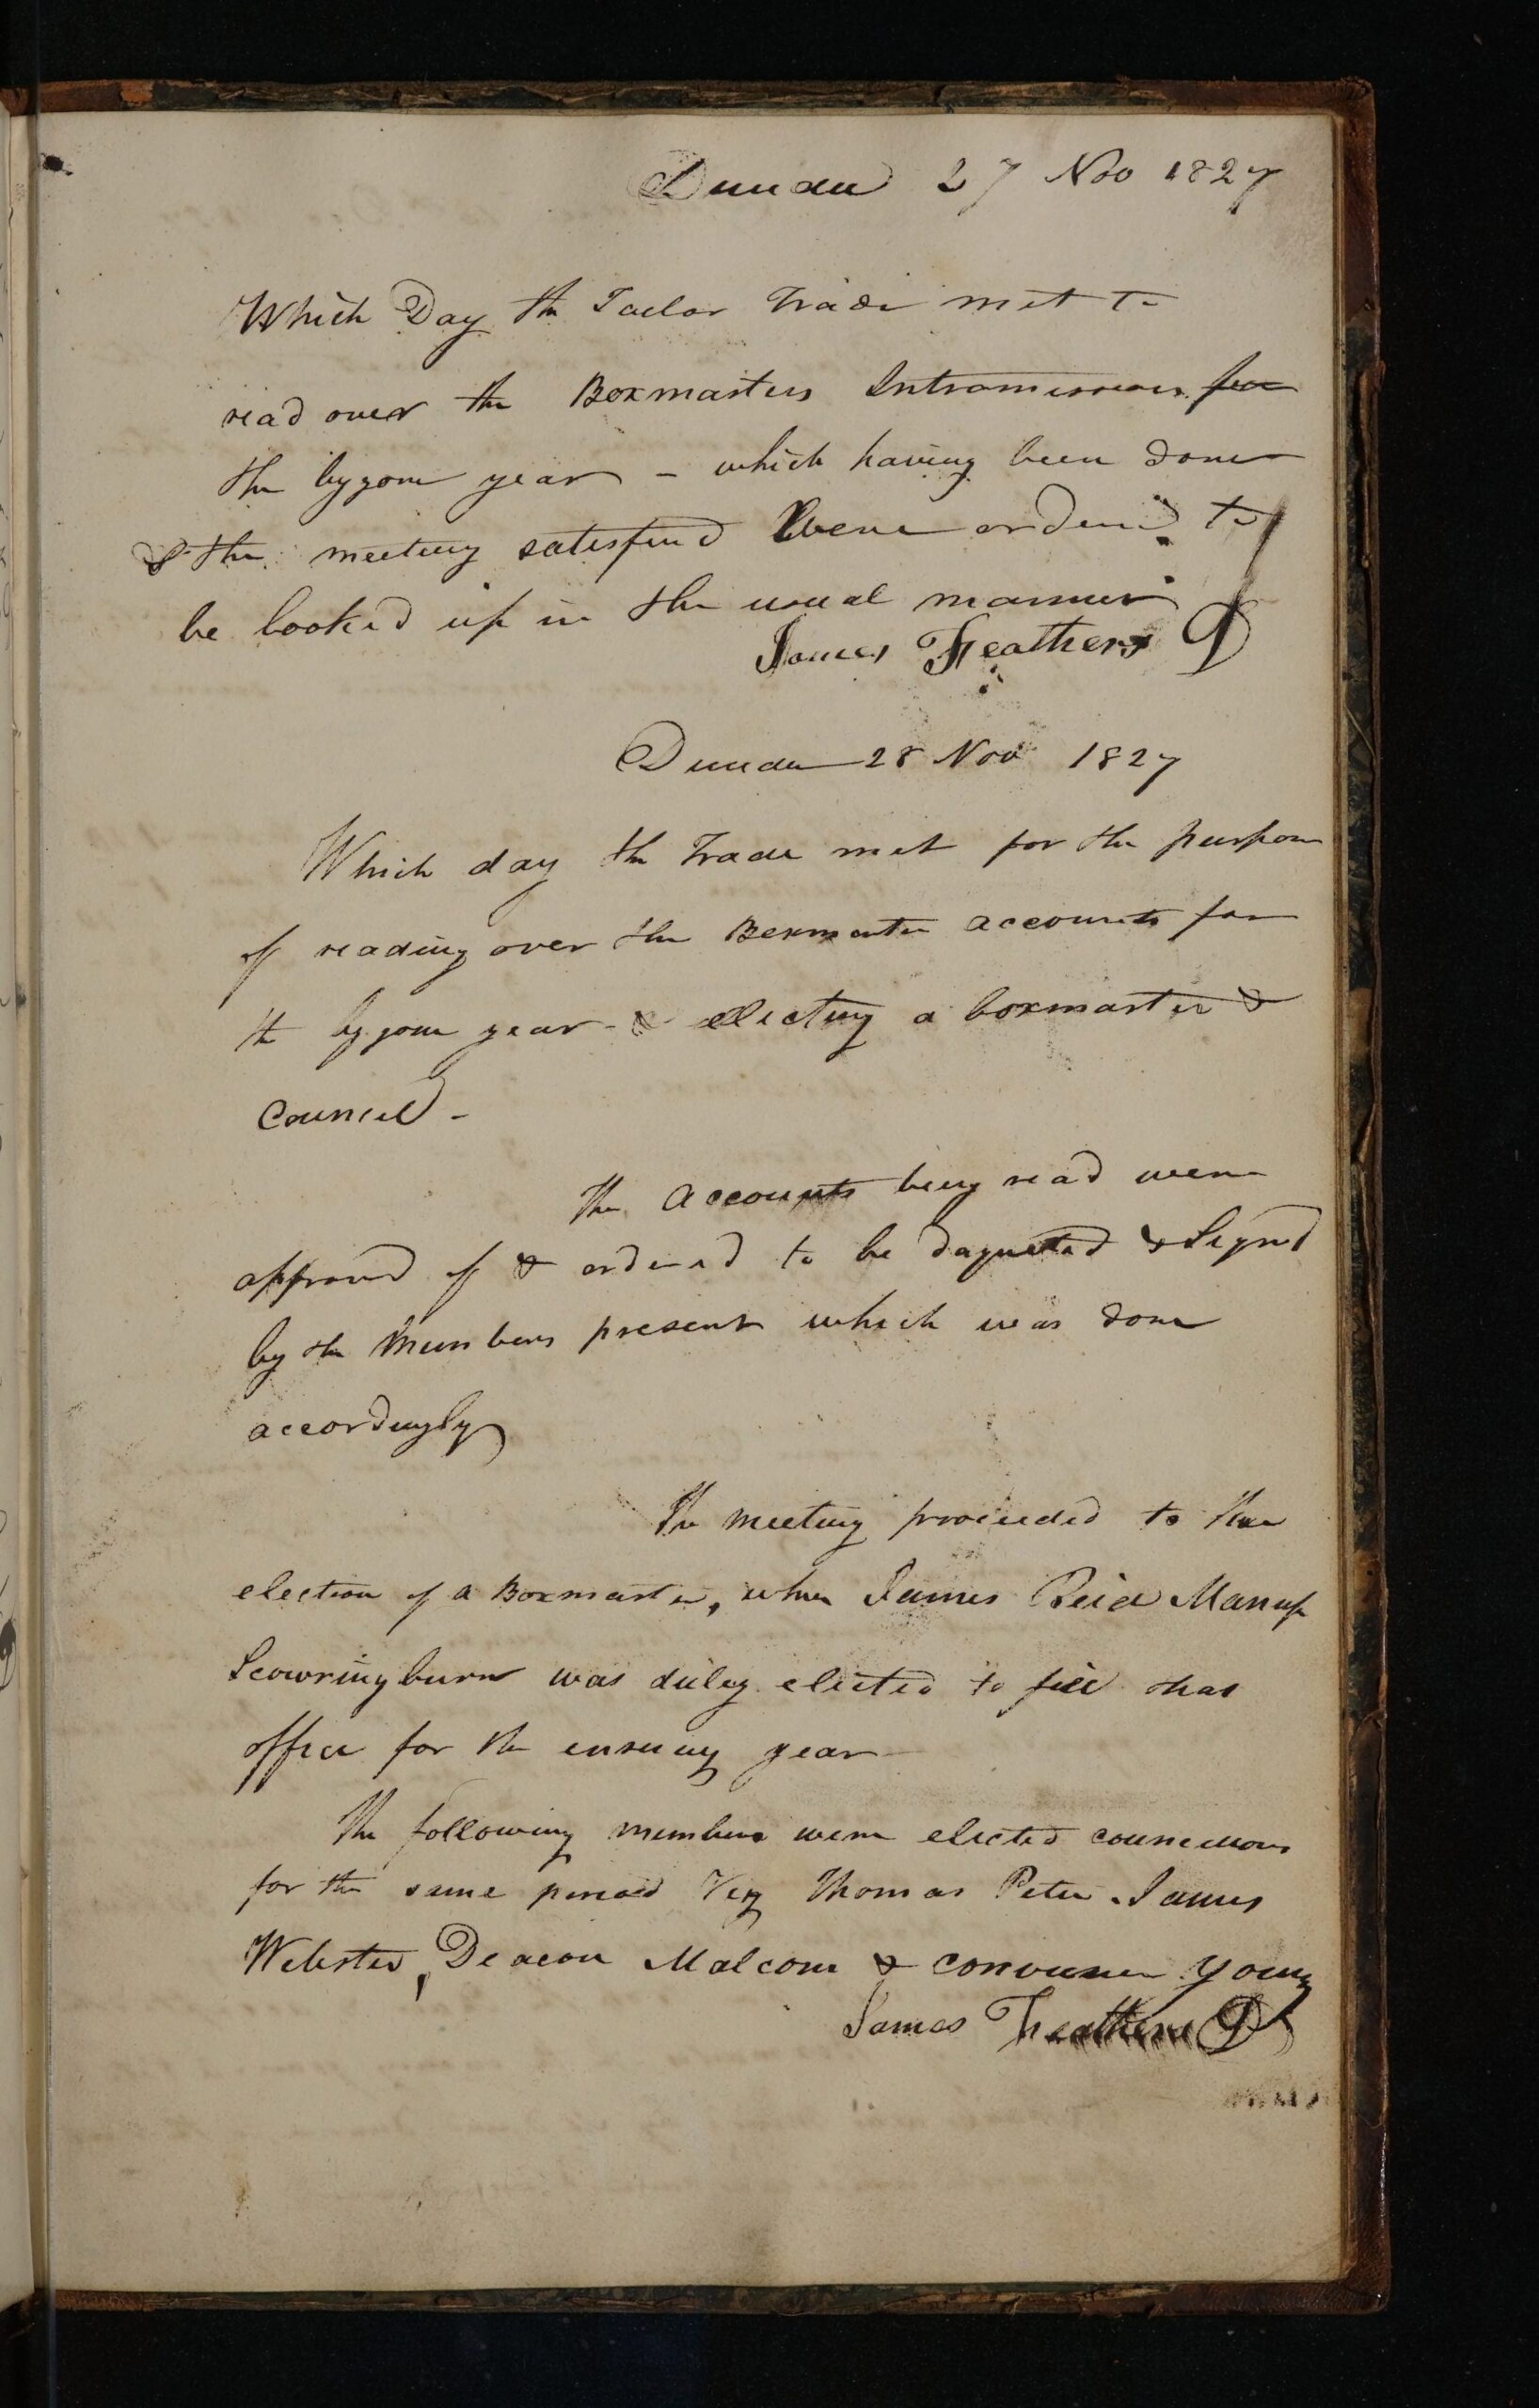 Dundee 27 Nov 1827
Which Day the Taelor Trade met to
read over the Boxmasters Intromissions for
the bygone year - which having been done
& the meeting satisfied Were ordered to
be booked up in the usual manner
James Feathers D
Dundee 28 Nov 1827
Which day the Trade met for the purpose
of reading over the Boxmaster accounts for
the bygone year - & electing a boxmaster &
Council -
The Accounts being read were
approved of & ordered to be doqueted & Signd
by the Members present which was done
accordingly
The meeting proceeded to the
election of a Boxmaster, when James Reid Manufr
Scowringburn was duley elected to fill that
office for the ensuing year
The following members were elected councillors
for the same period Viz Thomas Peter James
Webster, Deacon Malcom & convener Young
James Feathers D